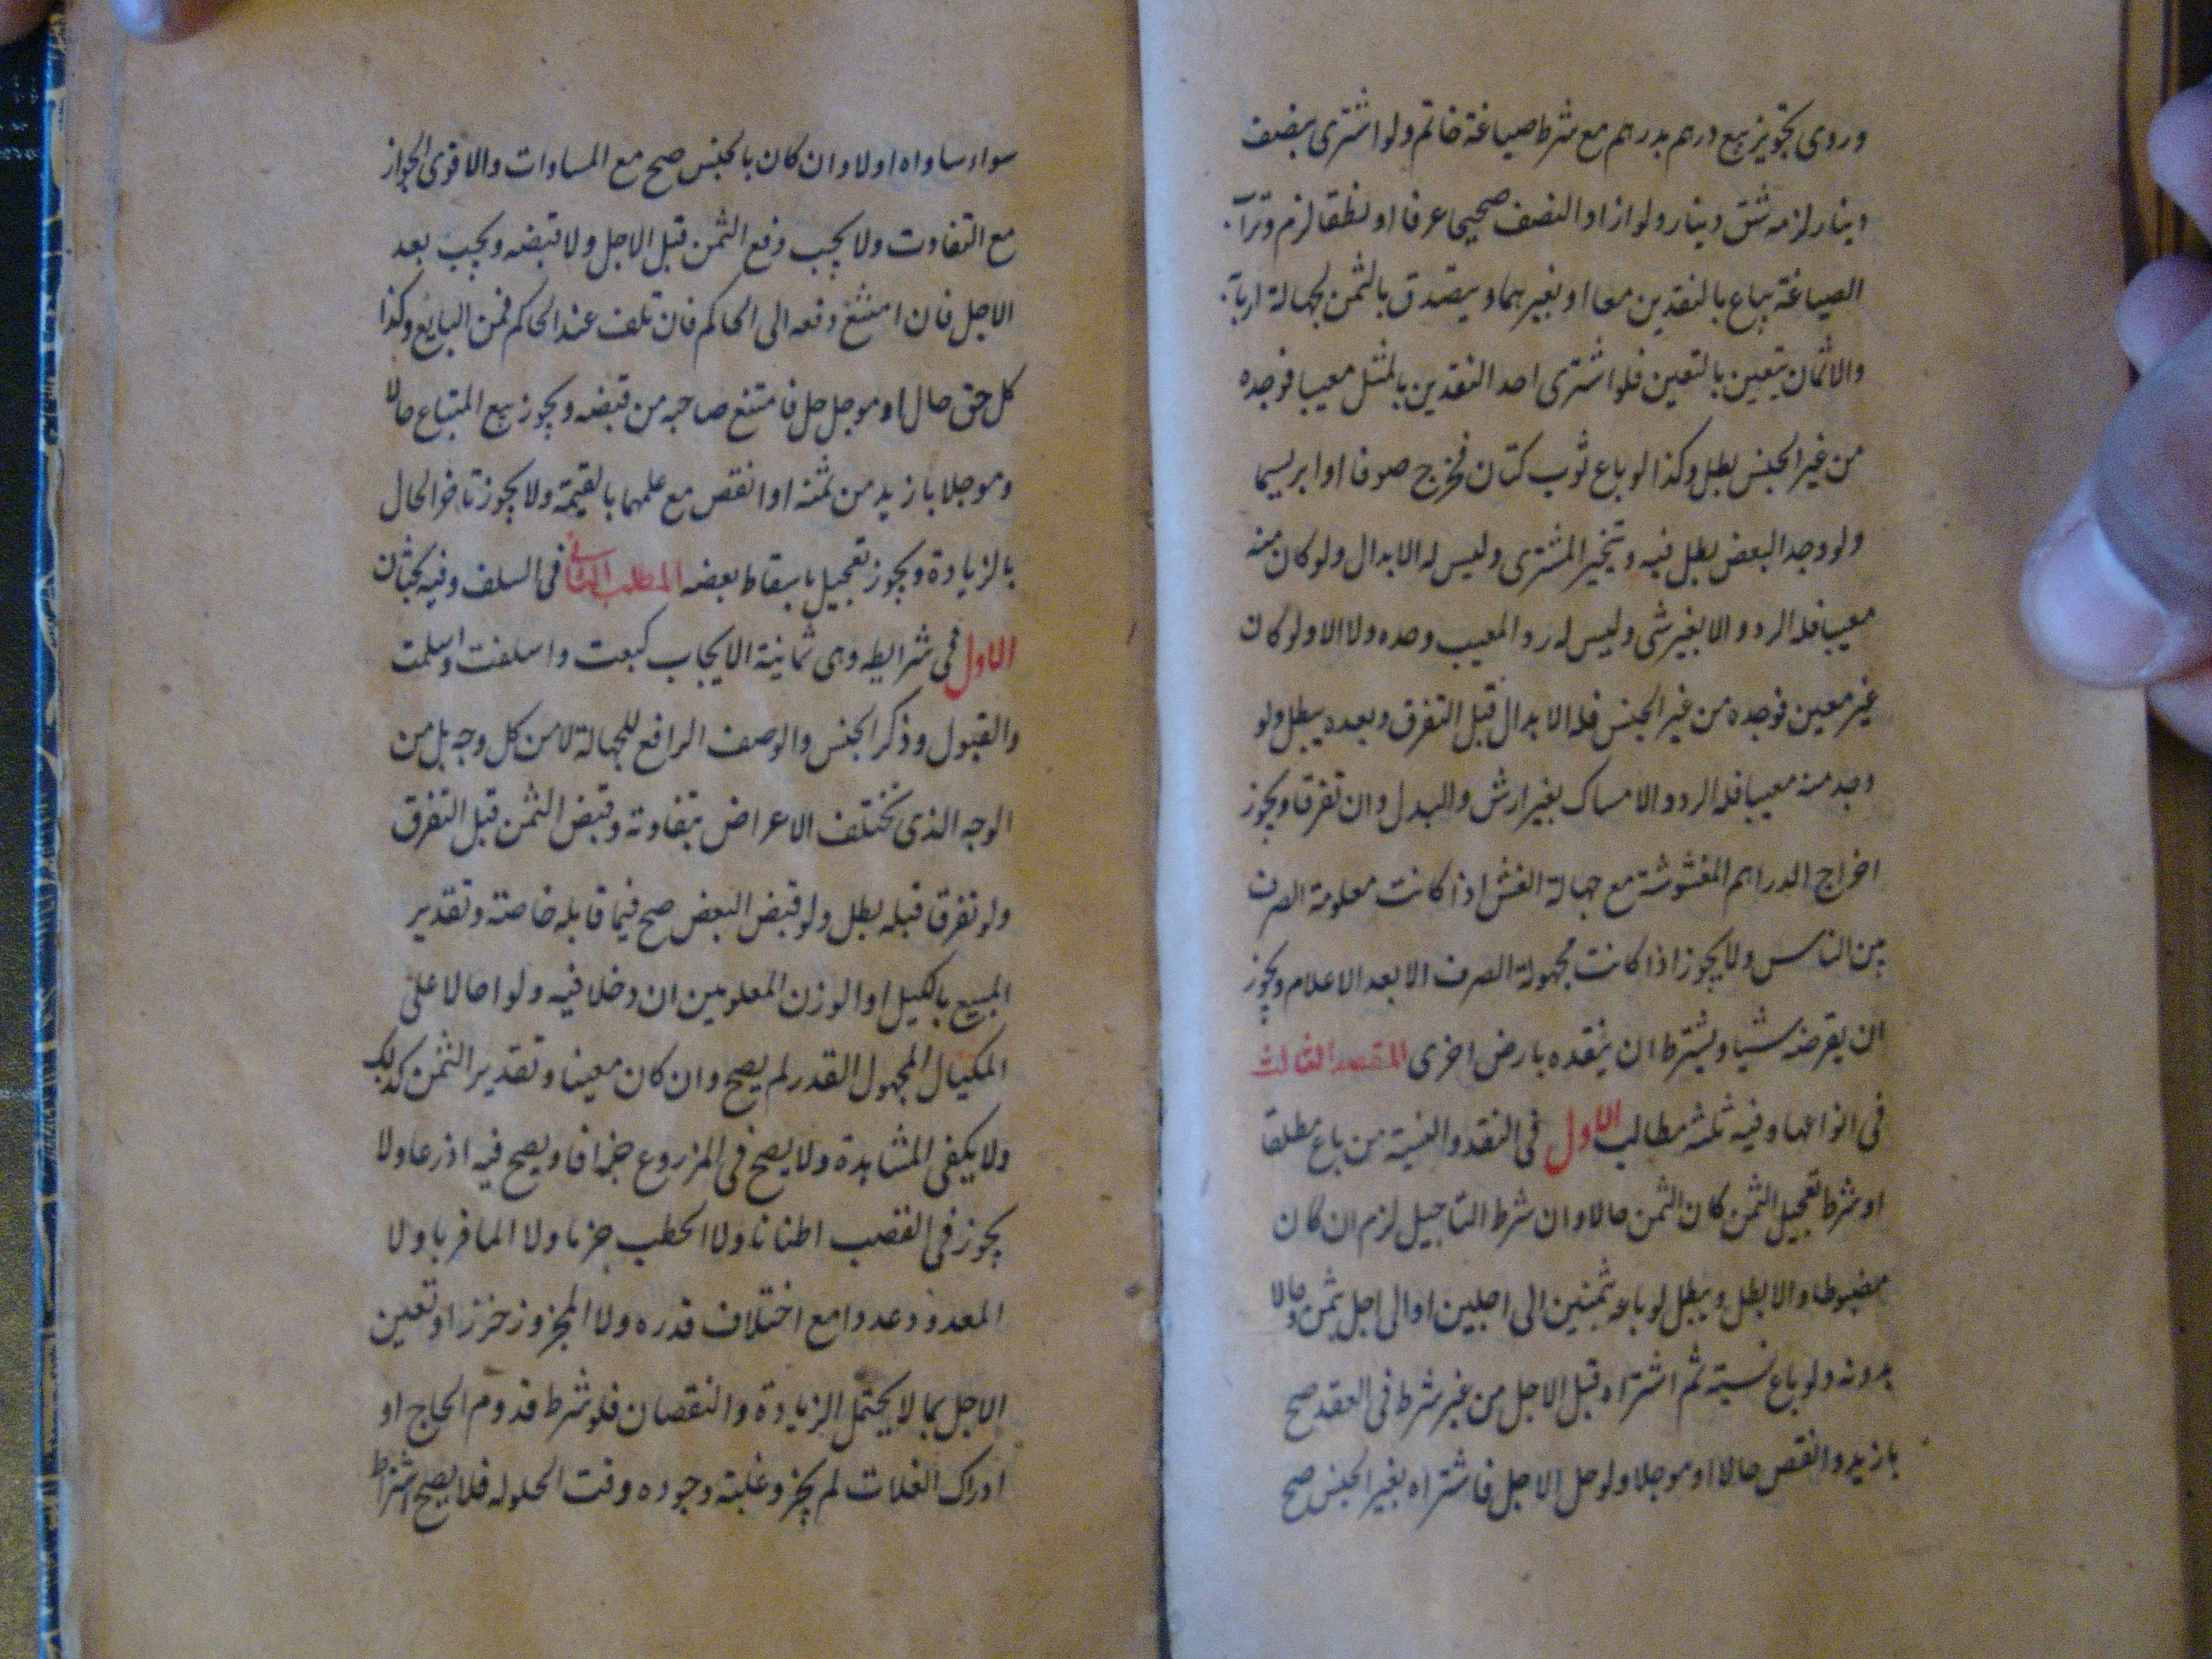 وروى تجويز بيع درهم بدرهم مع شرط صياغة خاتم ولو اشترى بنصف
دينار لزمه شق دينار ولو اراد النصف صحيحا عرفا او نطقا لزم وتراب
الصياغة يباع بالنقدين معا او بغيرهما ويتصدق بالثمن لجهالة اربابه
والاثمان يتعين بالتعين فلو اشترى احد النقدين بالمثل معيبا فوجده
من غير الجنس بطل وكذا لو باع ثوب كتان فخرج صوفا او ابريسما
ولو وجد البعض بطل فيه ويتخير المشترى وليس له الابدال ولو كان منه
معيبا فله الرد والا بغير شى وليس له رد المعيب وحده ولا الا ولو كان
غير معين فوجده من غير الجنس فله الابدال قبل التفرق وبعده يبطل ولو
وجد منه معيبا فله الرد والامساك بغير ارش والبدل وان تفرقا ويجوز
اخراج الدراهم المغشوشة مع جهالة الغش اذا كانت معلومة الصرف
بين الناس ولا يجوز اذا كانت مجهولة الصرف الا بعد الاعلام ويجوز
ان يقرضه شيا ويشترط ان ينقده بارض اخرى المقصد الثالث
فى انواعها وفيه ثلثة مطالب الاول فى النقد والنسية من باع مطلقا
او شرط تعجيل الثمن كان الثمن حالا وان شرط التاجيل لزم ان كان
مضبوطا والا بطل ويبطل لو باعه بثمنين الى اجلين او الى اجل بثمن وحالا
بدونه ولو باع نسية ثم اشتراه قبل الاجل من غير شرط فى العقد صح
بازيد وانقص حالا او موجلا ولو حل الاجل فاشتراه بغير الجنس صح
سواء ساواه اولا وان كان بالجنس صح مع المساوات والاقوى الجواز
مع التفاوت ولا يجب دفع الثمن قبل الاجل ولا قبضه ويجب بعد
الاجل فان امتنع دفعه الى الحاكم فان تلف عند الحاكم فمن البايع وكذا
كل حق حال او موجل حل فامتنع صاحبه من قبضه ويجوز بيع المتاع حالا
وموجلا بازيد من ثمنه او انقص مع علمهما بالقيمة ولا يجوز تاخر الحال
بالزيادة ويجوز تعجيل باسقاط بعضه المطلب الثانى فى السلف وفيه بحثان
الاول فى شرايطه وهى ثمانية الايجاب كبعت واسلفت واسلمت
والقبول وذكر الجنس والوصف الرافع للجهالة لا من كل وجه بل من
الوجه الذى تختلف الاعراض بتفاوته وقبض الثمن قبل التفرق
ولو تفرق قبله بطل ولو قبض البعض صح فيما قابله خاصة وتقدير
المبيع بالكيل او الوزن المعلومين ان دخلا فيه ولو احالا على
المكيال المجهول القدر لم يصح وان كان معينا وتقدير الثمن كذلك
ولا يكفى المشاهدة ولا يصح فى المزروع جزافا ويصح فيه اذرعا ولا
يجوز فى القصب اطنانا ولا الحطب حزما ولا الماء قربا ولا
المعدود عددا مع اختلاف قدره ولا المجزوز جززا وتعين
الاجل بما لا يحتمل الزيادة والنقصان فلو شرط قدوم الحاج او
ادراك الغلات لم يجز وغلبة وجوده وقت الحلوله فلا يصح اشتراط